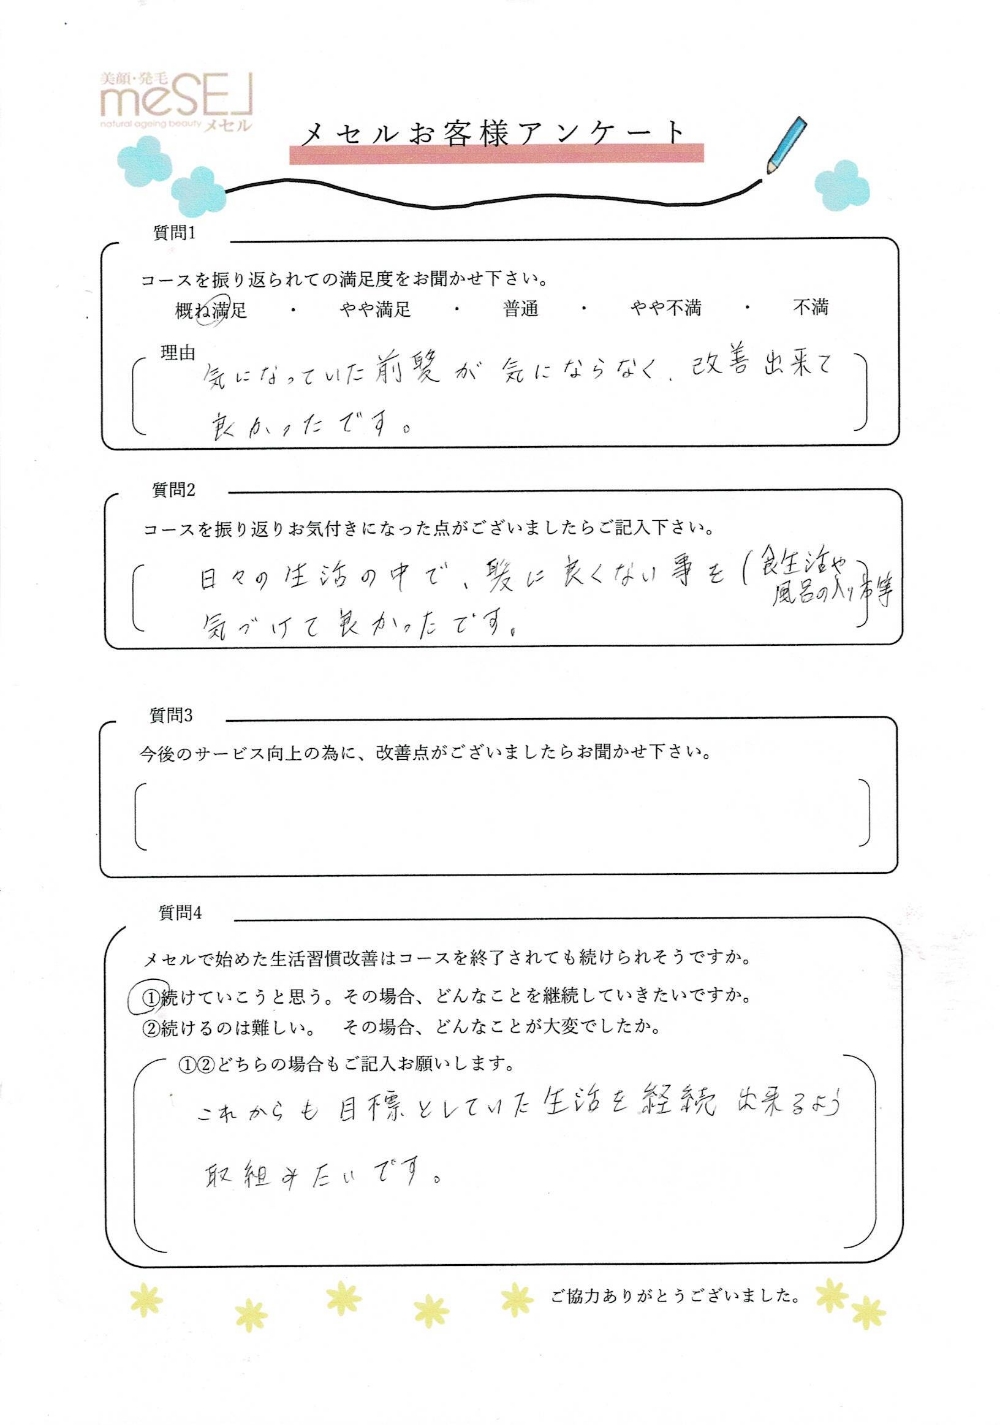 美顔・発毛
meSEL
natural ageing beauty メセル
メセルお客様アンケート
質問1
コースを振り返られての満足度をお聞かせ下さい。
概ね満足 ・ やや満足 ・ 普通 ・ やや不満 ・ 不満
理由
気になっていた前髪が気にならなく、改善出来て
良かったです。
質問2
コースを振り返りお気付きになった点がございましたらご記入下さい。
日々の生活の中で、髪に良くない事を(食生活や
風呂の入り方等
気づけて良かったです。
質問3
今後のサービス向上の為に、改善点がございましたらお聞かせ下さい。
質問4
メセルで始めた生活習慣改善はコースを終了されても続けられそうですか。
①続けていこうと思う。その場合、どんなことを継続していきたいですか。
②続けるのは難しい。 その場合、どんなことが大変でしたか。
①②どちらの場合もご記入お願いします。
これからも目標としていた生活を経続出来るよう
取組みたいです。
ご協力ありがとうございました。